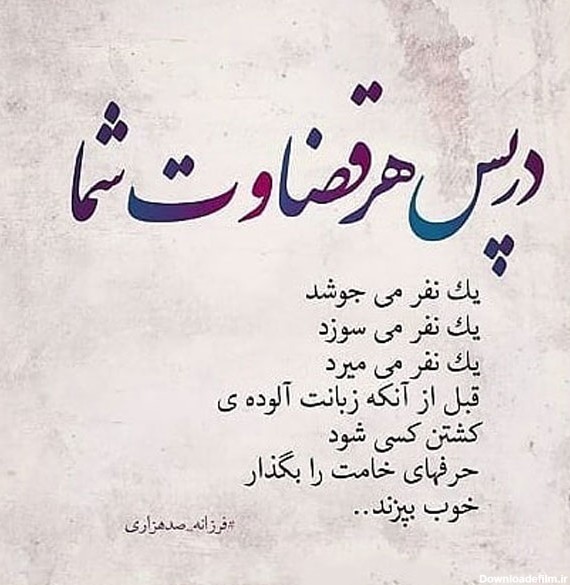 در پس هر قضاوت شما
یك نفر می جوشد
یك نفر می سوزد
یك نفر می میرد
قبل از آنکه زبانت آلوده ی
کشتن کسی شود
حرفهای خامت را بگذار
خوب بپزند..
#فرزانه_صدهزاری
Downloadefilm.ir